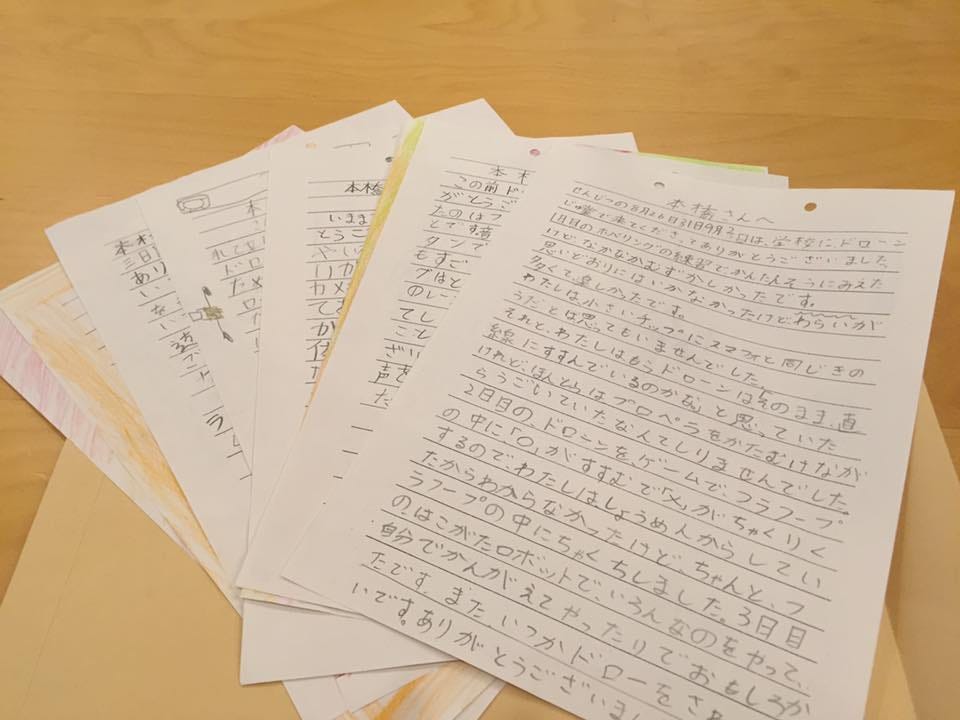 本橋さんへ
せんじつの8月26日31日9月2日は、学校に、ドローン
じ業で来てくださってありがとうございました。
1日目のホバリングの練習でかんたんそうにみえた
けどなかなかむずかしかったです。
思いどおりにはいかなかったけどわらいが
多くて楽しかったです。
わたしは小さいチップにスマフォと同じきの
うだとは思ってもいませんでした。
それと、わたしはもうドローンはそのまま、直
線にすすんでいるのかな」と思っていた
けれど、ほんとうはプロペラをかたむけなが
らうごいていたなんてしりませんでした。
2日目の、ドローンを、ゲームで、フラフープ
の中に「○」がすすむで「×」がちゃくりく
するので、わたしは、しょうめんからしてい
たからわからなかったけど、ちゃんと、フ
ラフープの中にちゃくちしました。3日目
の、はこがたロボットで、いろんなのをやって、
自分でかんがえてやったりでおもしろか
たです。また、いつかドローをさ
いです。ありがとうございまし
この前ド
がとうご
たのはつ
とです。
タンで
もすご
グはと
のレー
てし
こと
ざい
声を
だ
本橋
いまま
とうこ
やい
りか
カメ
てき
か
本
れて
ドロ
ため
ロ
本橋
三日
あり
い
ない